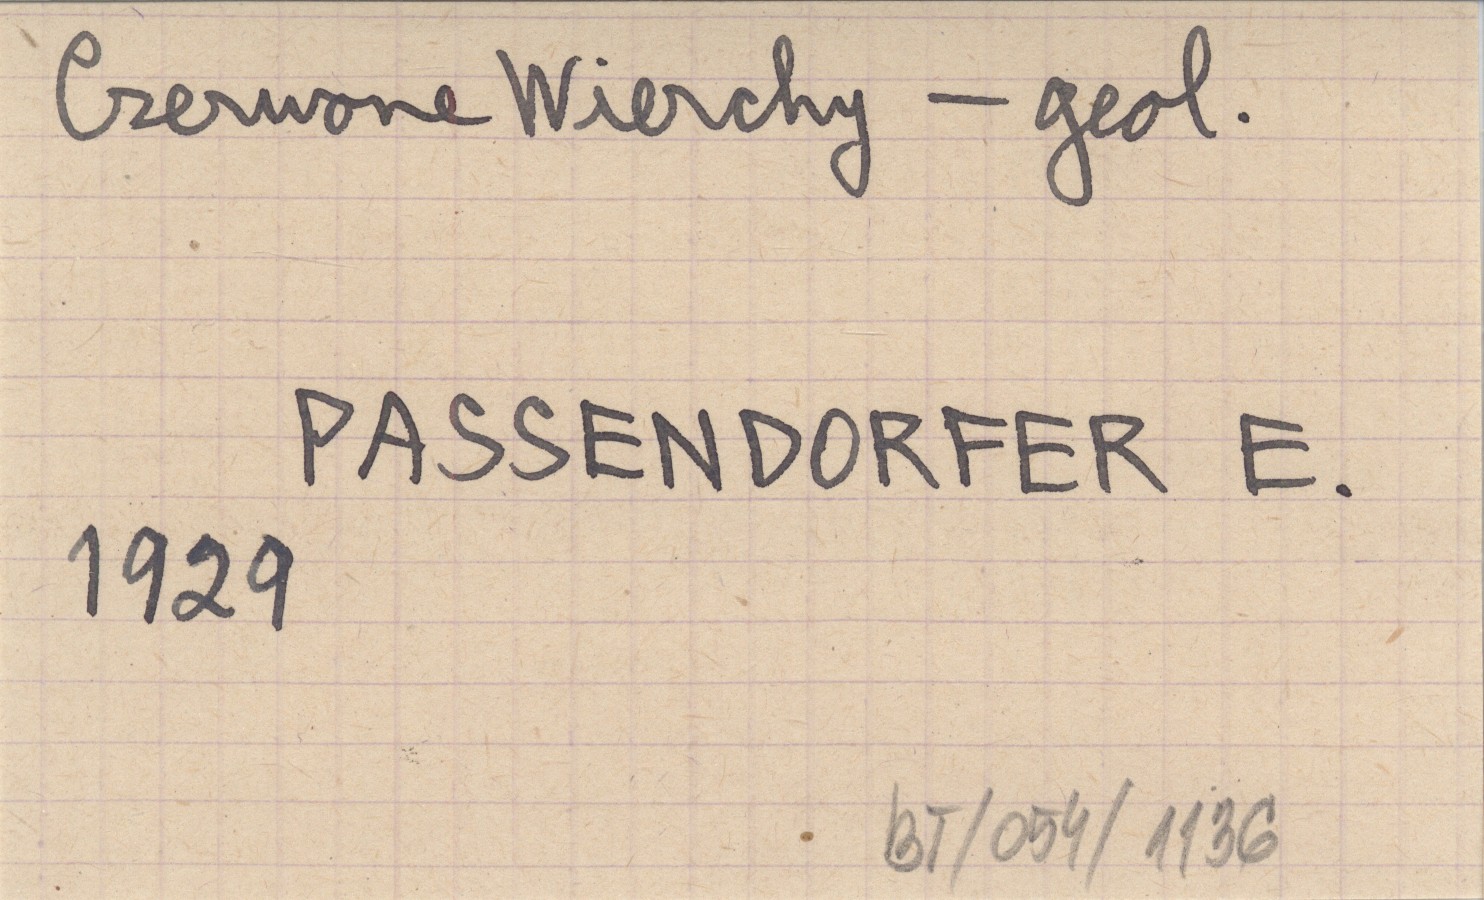 Czerwone Wierchy — geol.
PASSENDORFER E.
1929
BT/054/1136